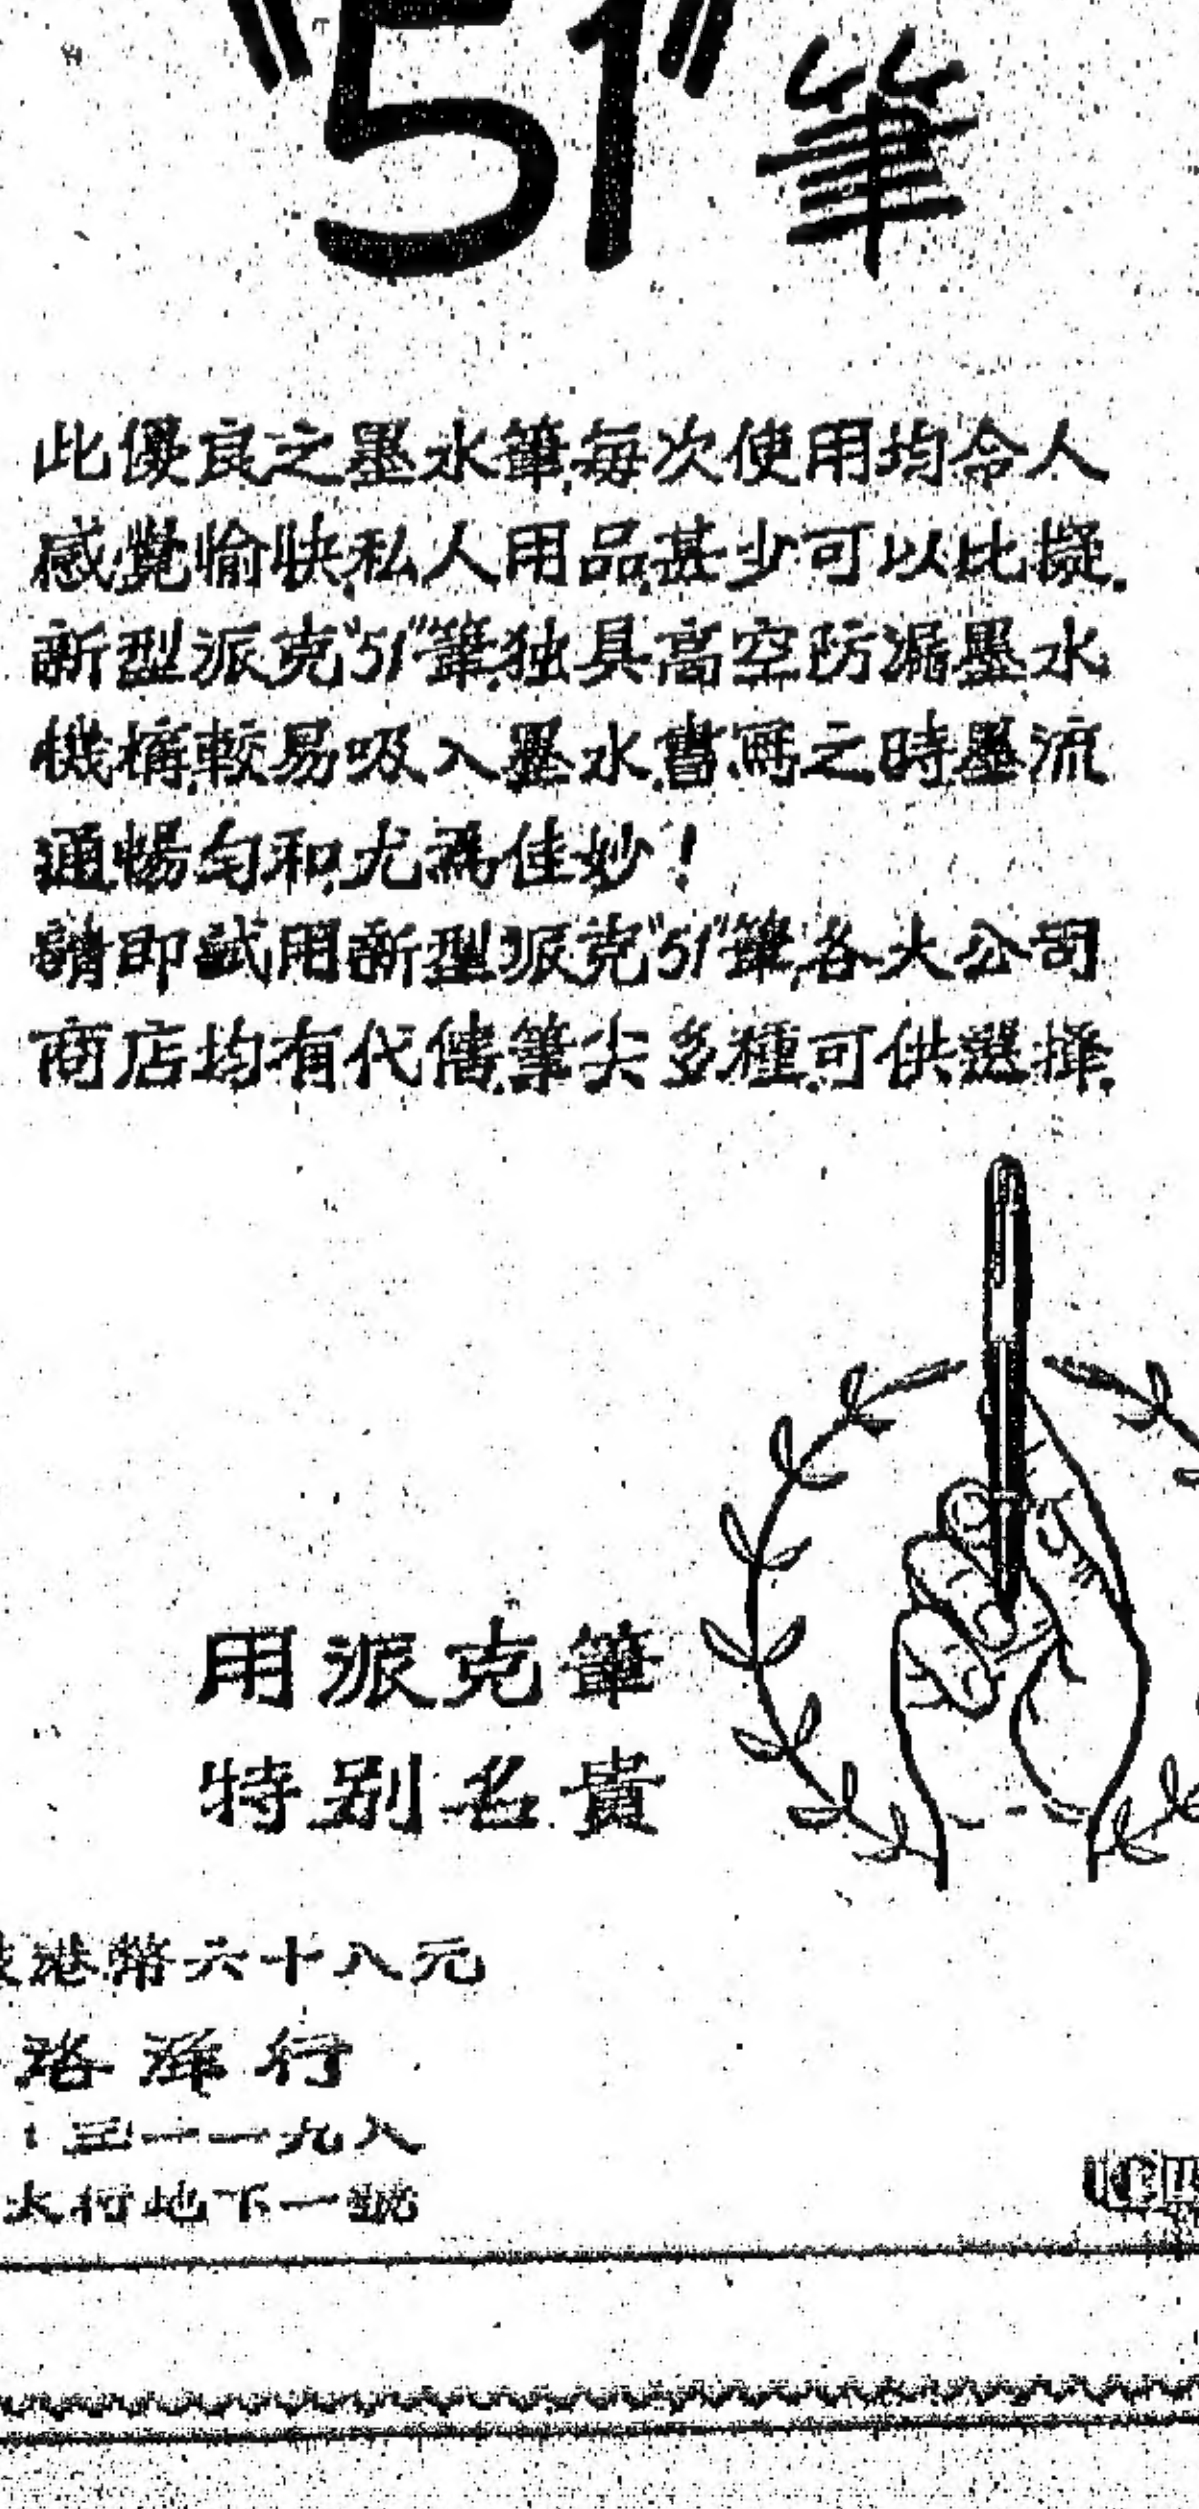 "51"筆
此優良之墨水筆,每次使用均令人
感覺愉快,私人用品,甚少可以比擬.
新型派克"51"筆,独具高空防漏墨水
機構,較易吸入墨水.書寫之時,墨流
通暢勻和,尤為佳妙!
請即試用新型派克"51"筆,各大公司
商店均有代售.筆尖多種,可供選擇.
用派克筆
特別名貴
港幣六十八元
洋行
三一一九八
大行地下一號